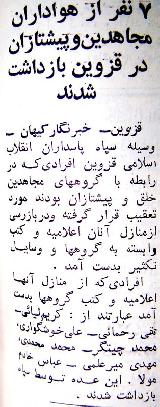 ۷ نفر از هواداران
مجاهدین و پیشتازان
در قزوین بازداشت
شدند
قزوین – خبرنگار کیهان –
وسیله سپاه پاسداران انقلاب
اسلامی قزوین افرادی که در
رابطه با گروههای مجاهدین
خلق و پیشتازان بودند مورد
تعقیب قرار گرفته و در بازرسی
از منازل آنان اعلامیه و کتب
وابسته به گروهها و وسایل
تکثیر بدست آمد.
افرادی که از منزل آنها
اعلامیه و کتب گروهها بدست
آمد عبارتند از:
تقی رحمانی – علی خوشگواری
محمد چیتگر – محمد محمدی
مهدی میرعلمی – عباس خادم
مولا . این عده توسط سپاه
بازداشت شدند.